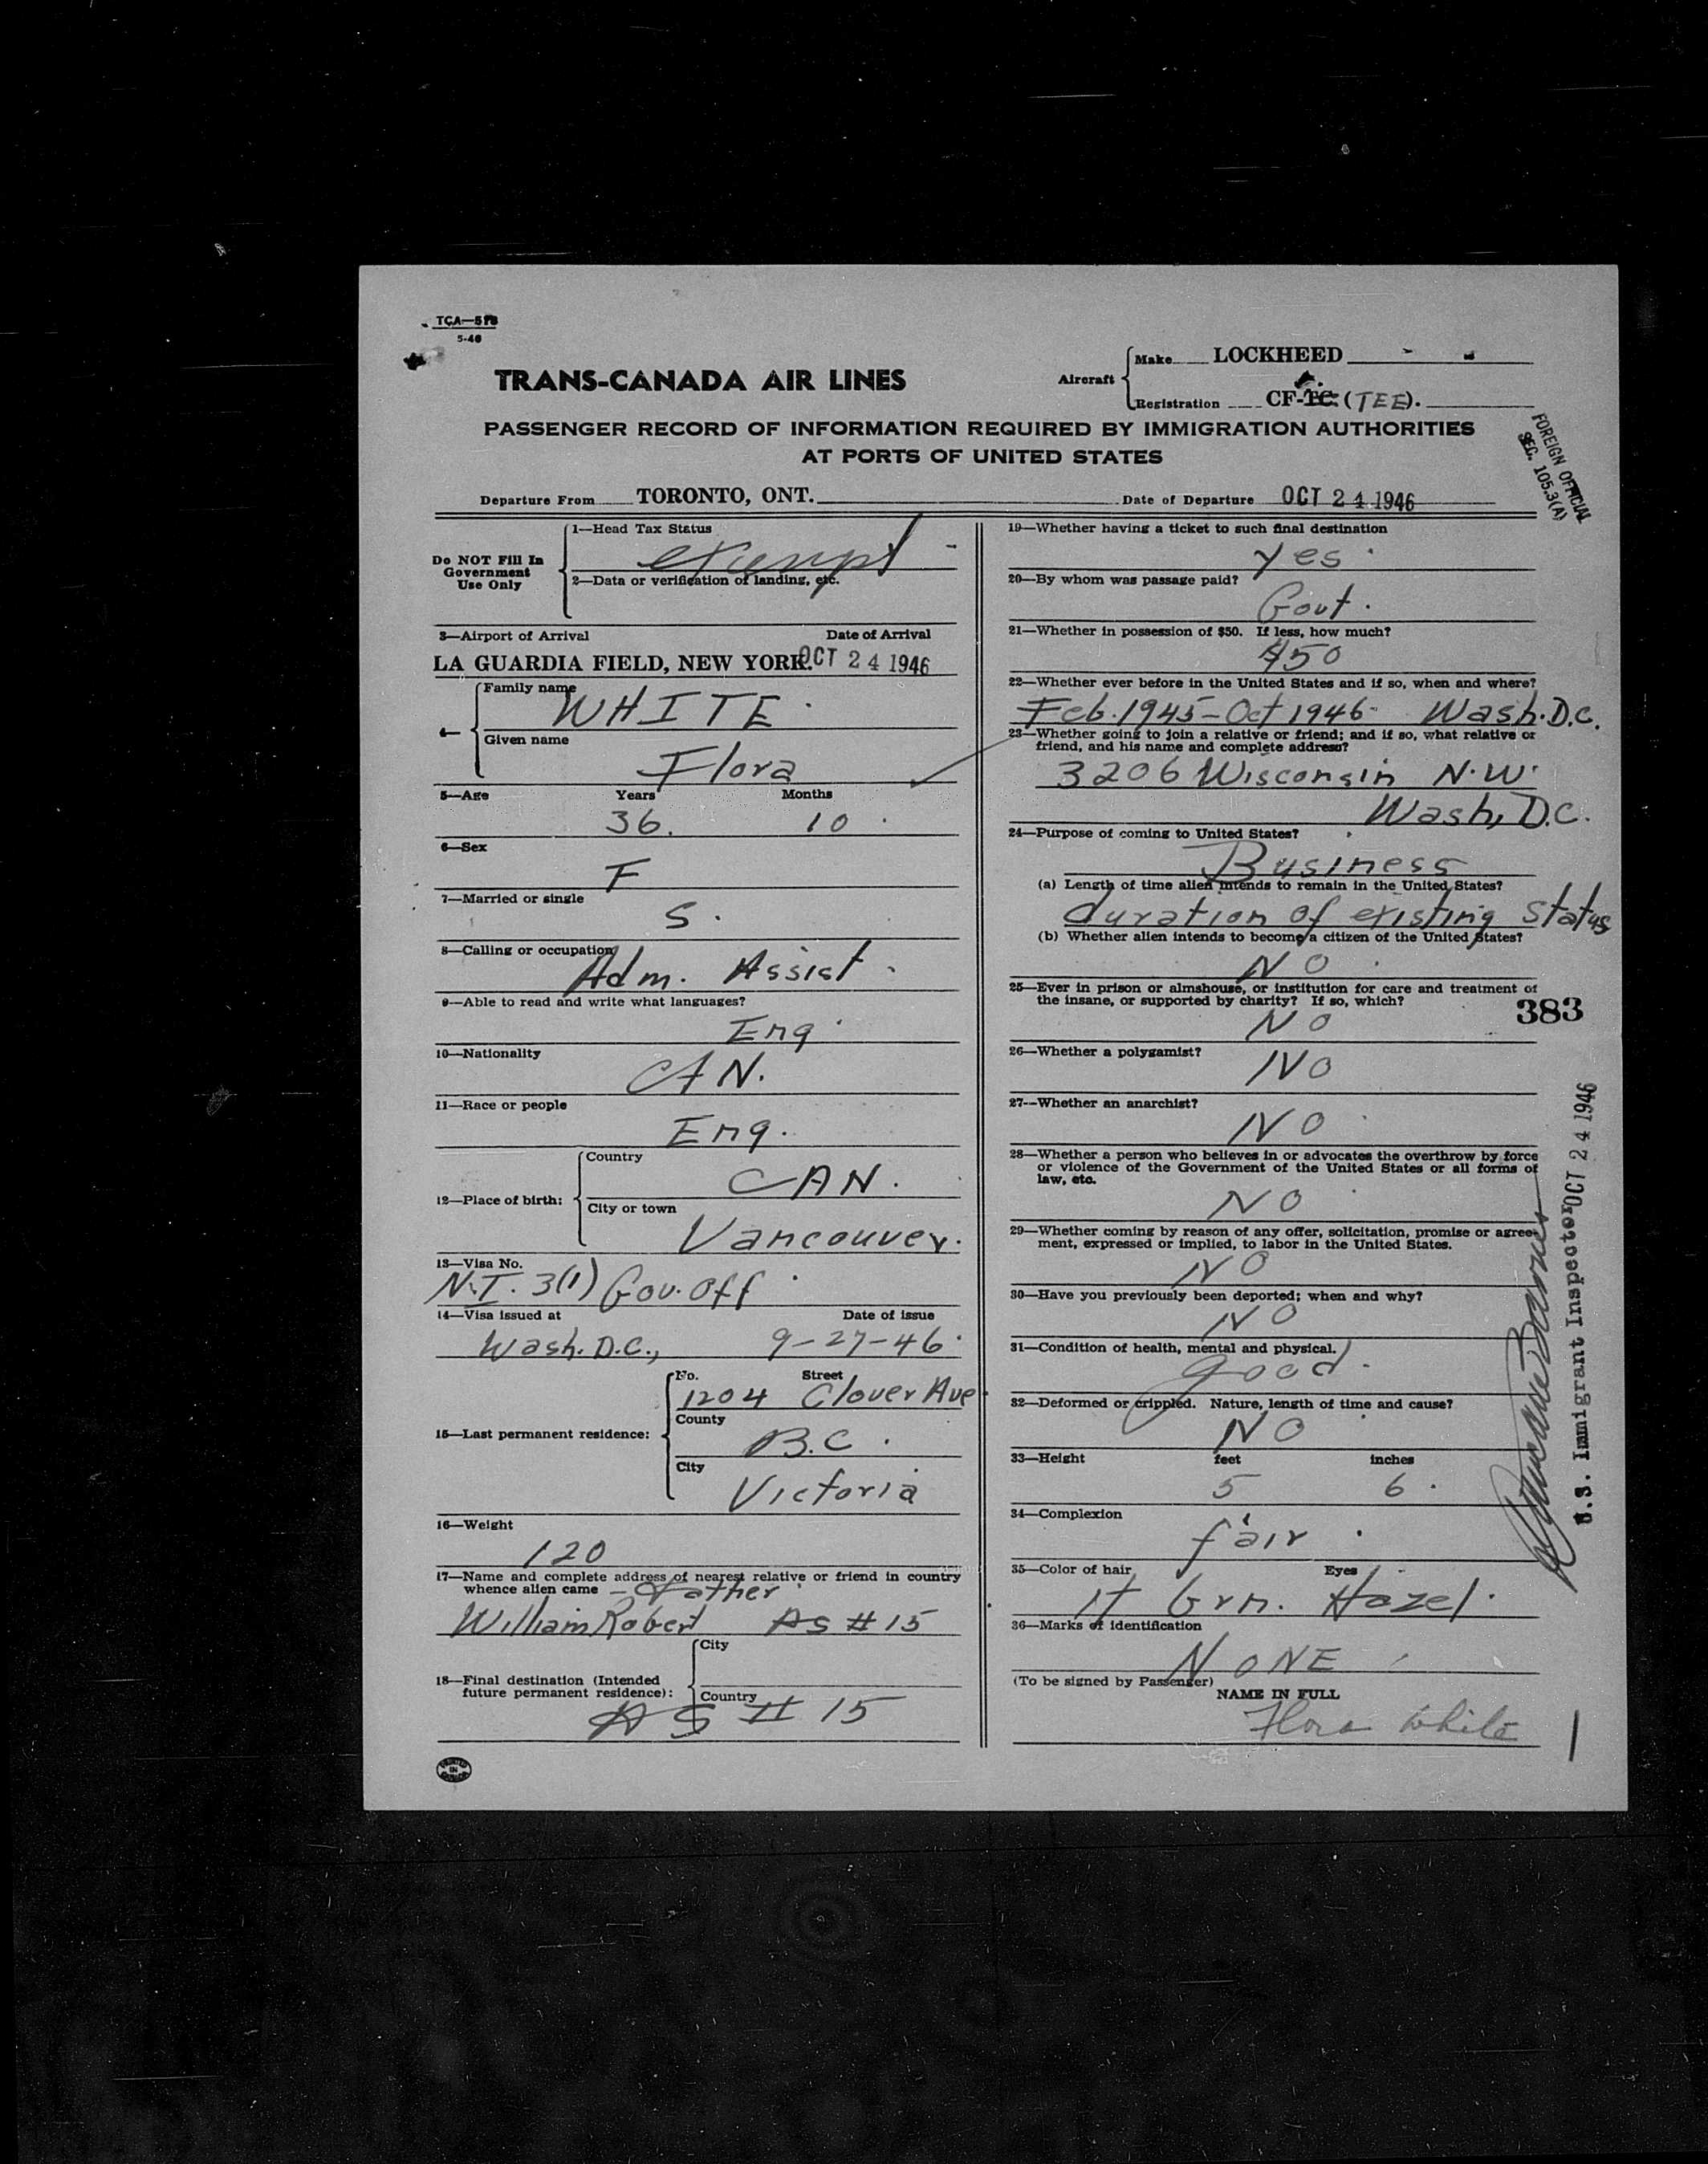 TCA—
5-46
TRANS-CANADA AIR LINES
Aircraft
Make LOCKHEED
Registration CF-TC (TEE).
PASSENGER RECORD OF INFORMATION REQUIRED BY IMMIGRATION AUTHORITIES
AT PORTS OF UNITED STATES
FOREIGN OFFICIAL
SEC. 105.3(A)
Departure From TORONTO, ONT.
Date of Departure OCT 24 1946
Do NOT Fill In
Government
Use Only
1—Head Tax Status
exempt
2—Data or verification of landing, etc.
3—Airport of Arrival Date of Arrival
LA GUARDIA FIELD, NEW YORK. OCT 24 1946
4—
Family name
WHITE
Given name
Flora
5—Age Years Months
36. 10
6—Sex
F
7—Married or single
S.
8—Calling or occupation
Adm. Assist.
9—Able to read and write what languages?
Eng
10—Nationality
CAN.
11—Race or people
Eng.
12—Place of birth:
Country
CAN.
City or town
Vancouver.
13—Visa No.
N.I. 3(1) Gov. Off
14—Visa issued at Date of issue
Wash. D.C., 9-27-46
15—Last permanent residence:
No. Street
1204 Clover Ave
County
B.C.
City
Victoria
16—Weight
120
17—Name and complete address of nearest relative or friend in country
whence alien came — Father
William Robert AS # 15
18—Final destination (Intended
future permanent residence):
City
Country
AS # 15
PRINTED
IN
CANADA
19—Whether having a ticket to such final destination
Yes
20—By whom was passage paid?
Govt.
21—Whether in possession of $50. If less, how much?
$50
22—Whether ever before in the United States and if so, when and where?
Feb. 1945 - Oct 1946 Wash. D.C.
23—Whether going to join a relative or friend; and if so, what relative or
friend, and his name and complete address?
3206 Wisconsin N.W.
Wash, D.C.
24—Purpose of coming to United States?
Business
(a) Length of time alien intends to remain in the United States?
duration of existing status
(b) Whether alien intends to become a citizen of the United States?
NO
25—Ever in prison or almshouse, or institution for care and treatment of
the insane, or supported by charity? If so, which?
NO
383
26—Whether a polygamist?
NO
27—Whether an anarchist?
NO
28—Whether a person who believes in or advocates the overthrow by force
or violence of the Government of the United States or all forms of
law, etc.
NO
29—Whether coming by reason of any offer, solicitation, promise or agree-
ment, expressed or implied, to labor in the United States.
NO
30—Have you previously been deported; when and why?
NO
31—Condition of health, mental and physical.
good
32—Deformed or crippled. Nature, length of time and cause?
NO
33—Height feet inches
5 6
34—Complexion
fair
35—Color of hair Eyes
lt brn. Hazel
36—Marks of identification
NONE
(To be signed by Passenger)
NAME IN FULL
Flora White
U.S. Immigrant Inspector OCT 24 1946